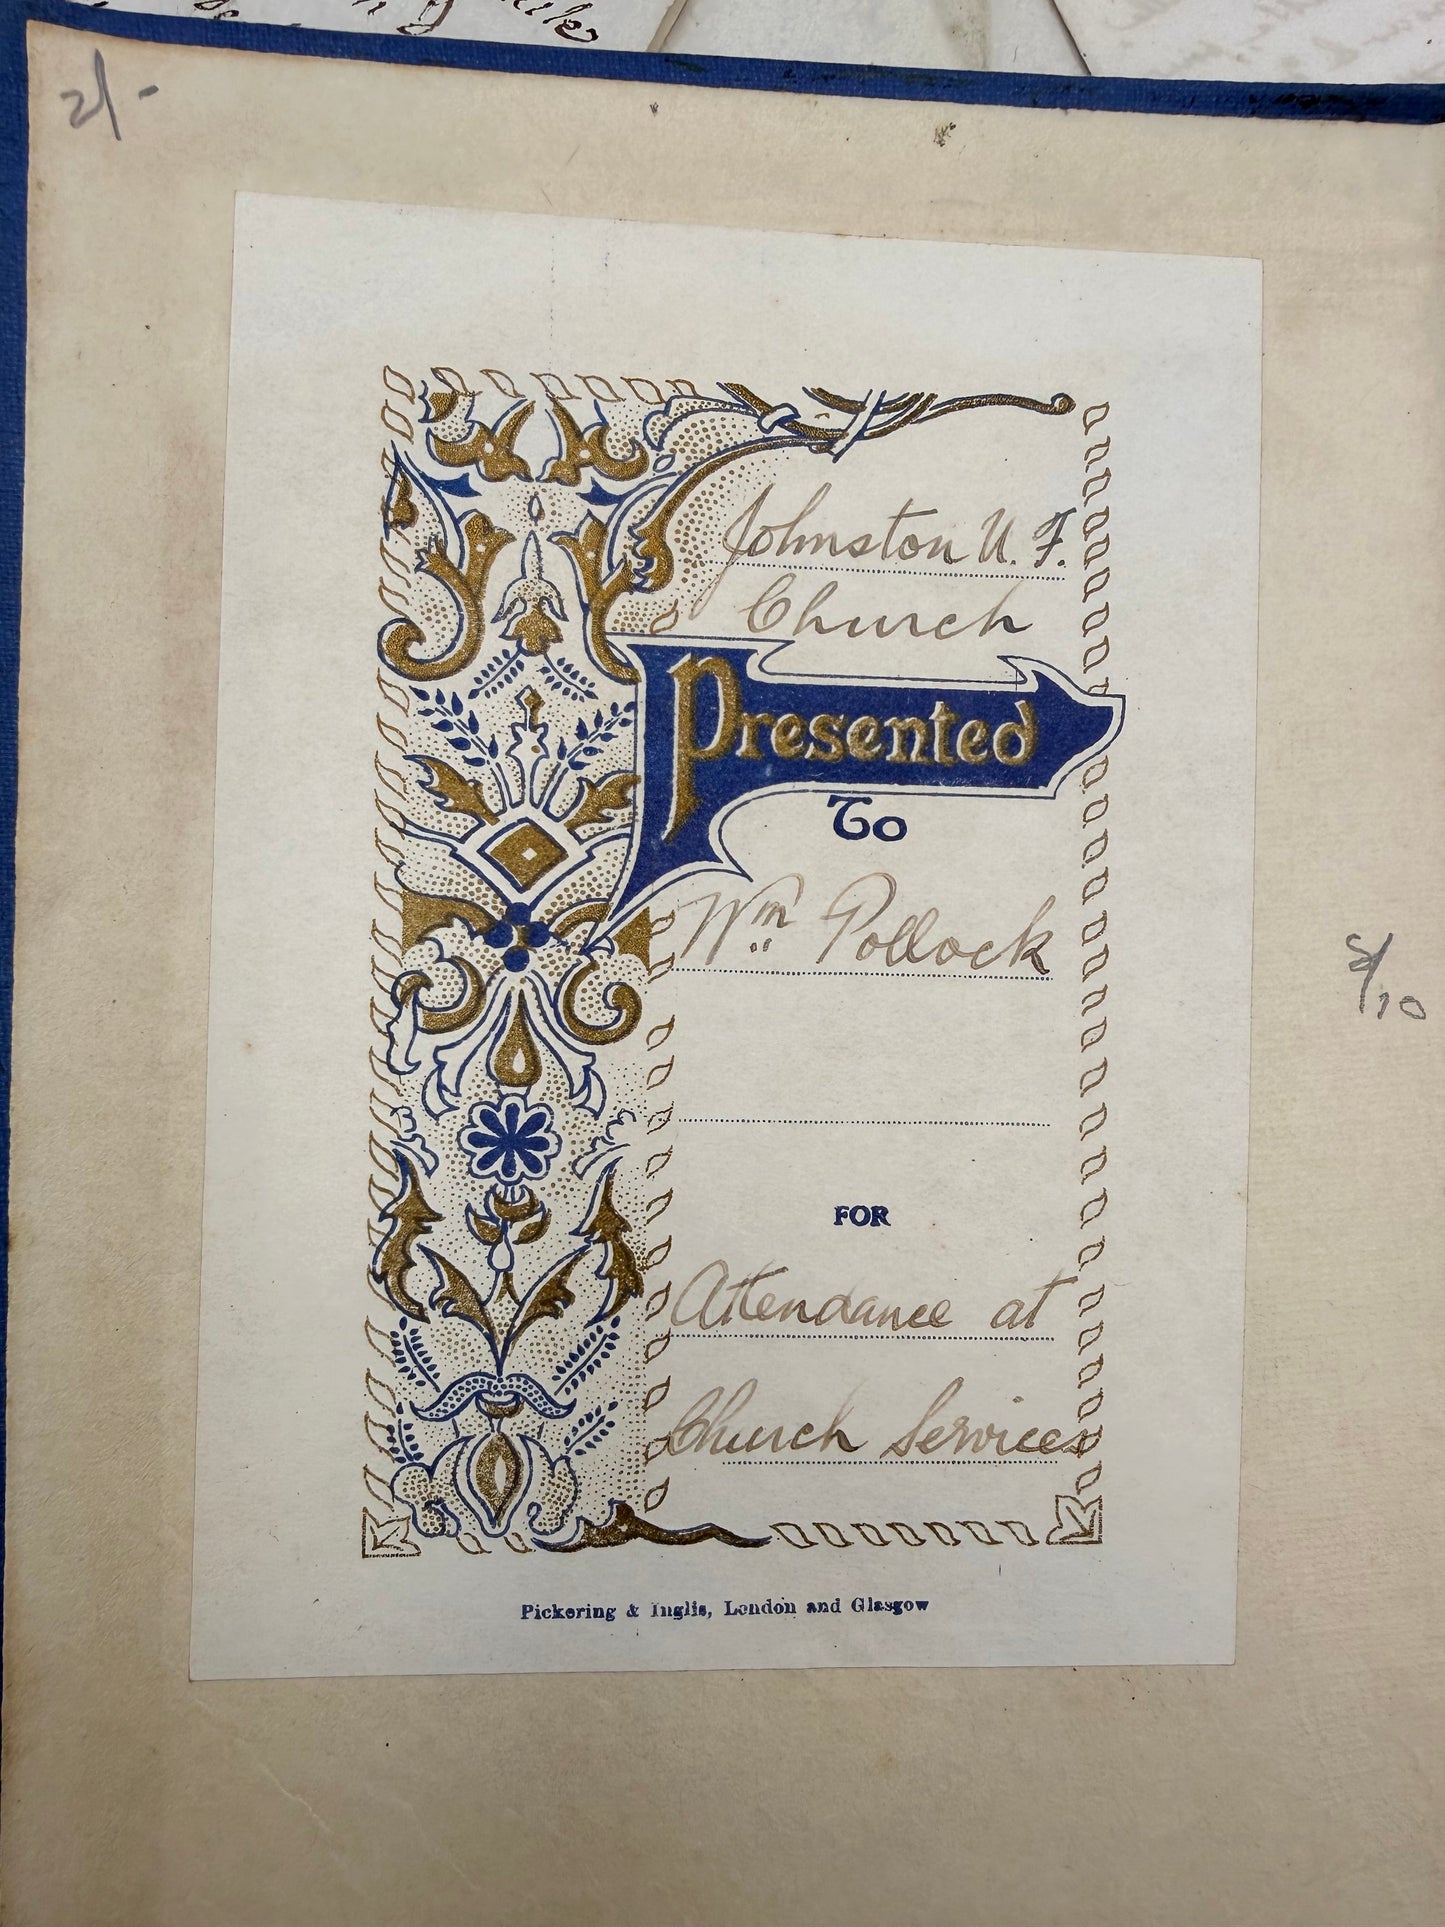 2/-
Johnston U. F.
Church
Presented
To
Wm Pollock
5/10
FOR
Attendance at
Church Services
Pickering & Inglis, London and Glasgow